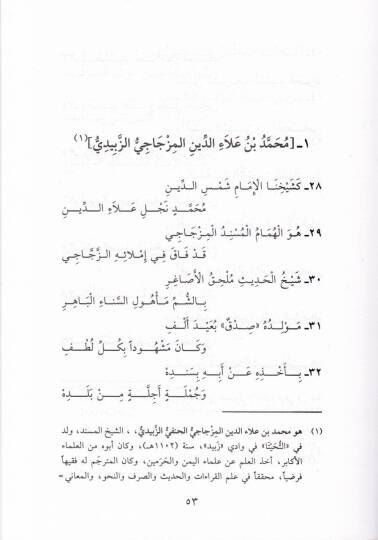 ١ـ [مُحَمَّدُ بْنُ عَلاَءِ الدِّينِ المِزْجَاجِيُّ الزَّبِيدِيُّ](١)
٢٨ـ كَشَيْخِنَا الْإِمَامِ شَمْسِ الـدِّيـنِ
مُحَمَّدٍ نَجْلِ عَـلَاءِ الـدِّيـنِ
٢٩ـ هُـوَ الْهُمَامُ الْمُسْنِدُ الْمِزْجَـاجِي
قَـدْ فَـاقَ فِي إِمْلائِـهِ الزَّجَّـاجِي
٣٠ـ شَيْخُ الْحَدِيثِ مُلْحِقُ الْأَصَاغِرِ
بِـالشُّمِّ مَـأْهُـولُ السَّنَاءِ الْبَاهِرِ
٣١ـ مَـوْلِـدُهُ «صِـدْقٌ» بُعَيْـدَ أَلْـفِ
وَكَـانَ مَشْهُـوداً بِكُـلِّ لُطْـفِ
٣٢ـ بِـأَخْـذِهِ عَـنْ أَبِـهِ بِسَنَـدِهْ
وَجُمْلَـةٍ أَجِلَّـةٍ مِـنْ بَلَـدِهْ
(١) هو محمد بن علاء الدين المزجاجيُّ الحنفيُّ الزَّبيديُّ، الشيخ المسند، ولد
في «التُّحَيْتَا» في وادي «زبيد»، سنة (١١٠٢هـ)، وكان أبوه من العلماء
الأكابر، أخذ العلم عن علماء اليمن والحَرَمين، وكان المترجَم له فقيهاً
فرضياً، محققاً في علم القراءات والحديث والصرف والنحو، والمعاني =
٥٣